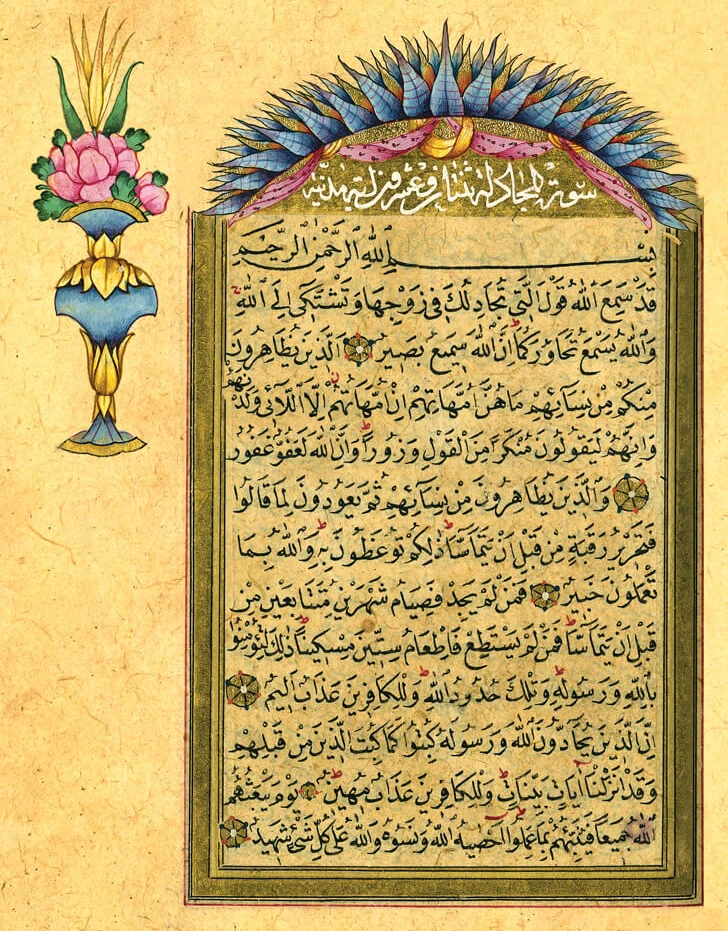 سورة المجادلة اثنتان وعشرون اية مدنية
بسم الله الرحمن الرحيم
قَدْ سَمِعَ اللّٰهُ قَوْلَ الَّتِي تُجَادِلُكَ فِي زَوْجِهَا وَتَشْتَكِي إِلَى اللّٰهِ
وَاللّٰهُ يَسْمَعُ تَحَاوُرَكُمَا إِنَّ اللّٰهَ سَمِيعٌ بَصِيرٌ اَلَّذِينَ يُظَاهِرُونَ
مِنْكُمْ مِنْ نِسَآئِهِمْ مَا هُنَّ اُمَّهَاتِهِمْ اِنْ اُمَّهَاتُهُمْ اِلَّا اللَّآئِى وَلَدْنَهُمْ
وَاِنَّهُمْ لَيَقُولُونَ مُنْكَرًا مِنَ الْقَوْلِ وَزُورًا وَاِنَّ اللّٰهَ لَعَفُوٌّ غَفُورٌ
وَالَّذِينَ يُظَاهِرُونَ مِنْ نِسَآئِهِمْ ثُمَّ يَعُودُونَ لِمَا قَالُوا
فَتَحْرِيرُ رَقَبَةٍ مِنْ قَبْلِ اَنْ يَتَمَآسَّا ذٰلِكُمْ تُوعَظُونَ بِهِ وَاللّٰهُ بِمَا
تَعْمَلُونَ خَبِيرٌ فَمَنْ لَمْ يَجِدْ فَصِيَامُ شَهْرَيْنِ مُتَتَابِعَيْنِ مِنْ
قَبْلِ اَنْ يَتَمَآسَّا فَمَنْ لَمْ يَسْتَطِعْ فَاِطْعَامُ سِتِّينَ مِسْكِينًا ذٰلِكَ لِتُؤْمِنُوا
بِاللّٰهِ وَرَسُولِهِ وَتِلْكَ حُدُودُ اللّٰهِ وَلِلْكَافِرِينَ عَذَابٌ اَلِيمٌ
اِنَّ الَّذِينَ يُحَآدُّونَ اللّٰهَ وَرَسُولَهُ كُبِتُوا كَمَا كُبِتَ الَّذِينَ مِنْ قَبْلِهِمْ
وَقَدْ اَنْزَلْنَا اٰيَاتٍ بَيِّنَاتٍ وَلِلْكَافِرِينَ عَذَابٌ مُهِينٌ يَوْمَ يَبْعَثُهُمُ
اللّٰهُ جَمِيعًا فَيُنَبِّئُهُمْ بِمَا عَمِلُوا اَحْصٰيهُ اللّٰهُ وَنَسُوهُ وَاللّٰهُ عَلٰى كُلِّ شَيْءٍ شَهِيدٌ